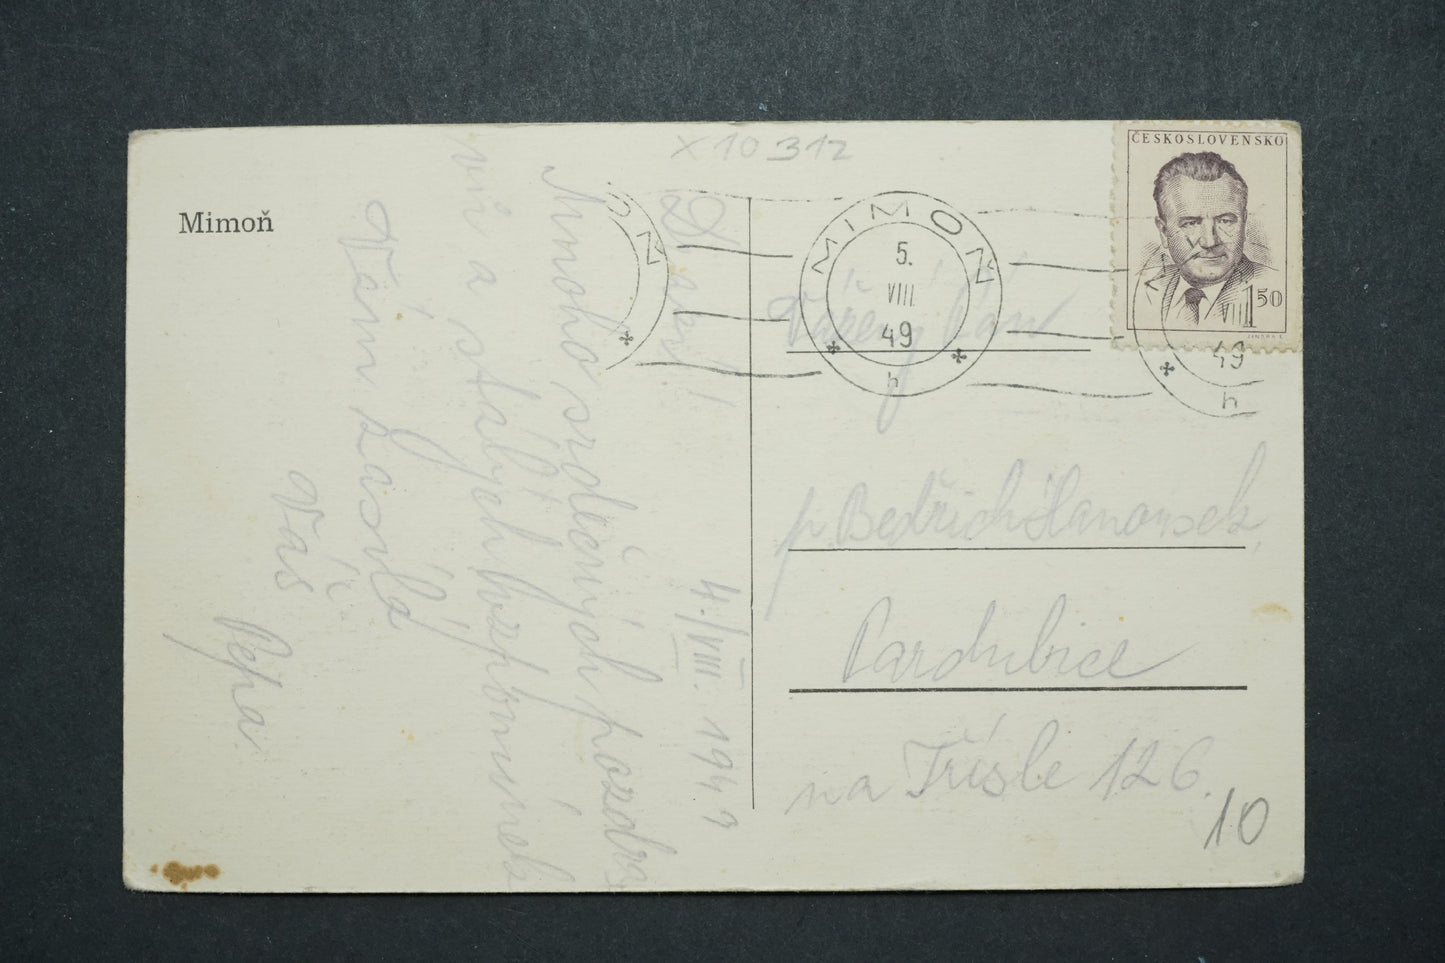 Mimoň
X 10312
4./VIII. 1949
Drazí!
Mnoho srdečných pozdra
vů a stálých vzpomínek
Vám zasílá
Váš
Pepa.
ČESKOSLOVENSKO
1.50
MIMOŇ
5.
VIII
49
h
Vážený pán
p. Bedřich Hanousek,
Pardubice
na Třísle 126.
10